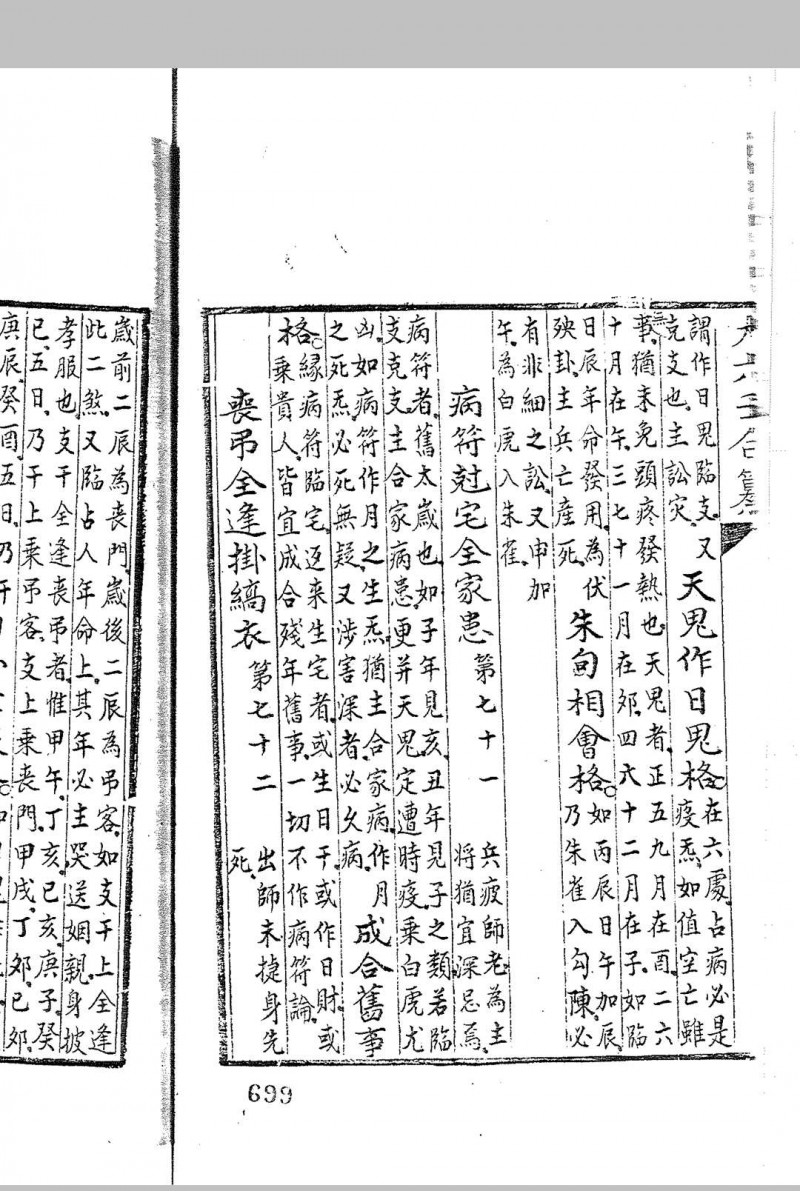 大六壬合纂
謂作日鬼臨支又天鬼作日鬼格在六處占病必是
克支也主訟灾疫炁如值空亡雖
事猶未免頭疼發熱也天鬼者正五九月在酉二六
十月在午三七十一月在卯四六十二月在子如臨
日辰年命發用為伏朱勾相會格如丙辰日午加辰
殃卦主兵亡産死乃朱雀入勾陳必
有非細之訟又申加
午為白虎入朱雀
病符尅宅全家患 第七十一 兵疲師老為主
將猶宜深忌焉
病符者舊太歲也如子年見亥丑年見子之類若臨
支克支主合家病患更并天鬼定遭時疫乘白虎尤
凶如病符作月之生炁猶主合家病作月成合舊事
之死炁必死無疑又涉害深者必久病
格緣病符臨宅迊来生宅者或生日干或作日財或
乘貴人皆宜成合殘年舊事一切不作病符論
喪弔全逢掛縞衣 第七十二 出師未捷身先
死
歲前二辰為喪門歲後二辰為弔客如支干上全逢
此二煞又臨占人年命上其年必主哭送姻親身披
孝服也支干全逢喪弔者惟甲午丁亥已亥庚子癸
已五日乃干上乘弔客支上乘喪門甲戌丁卯已卯
庚辰癸酉五日乃干
699